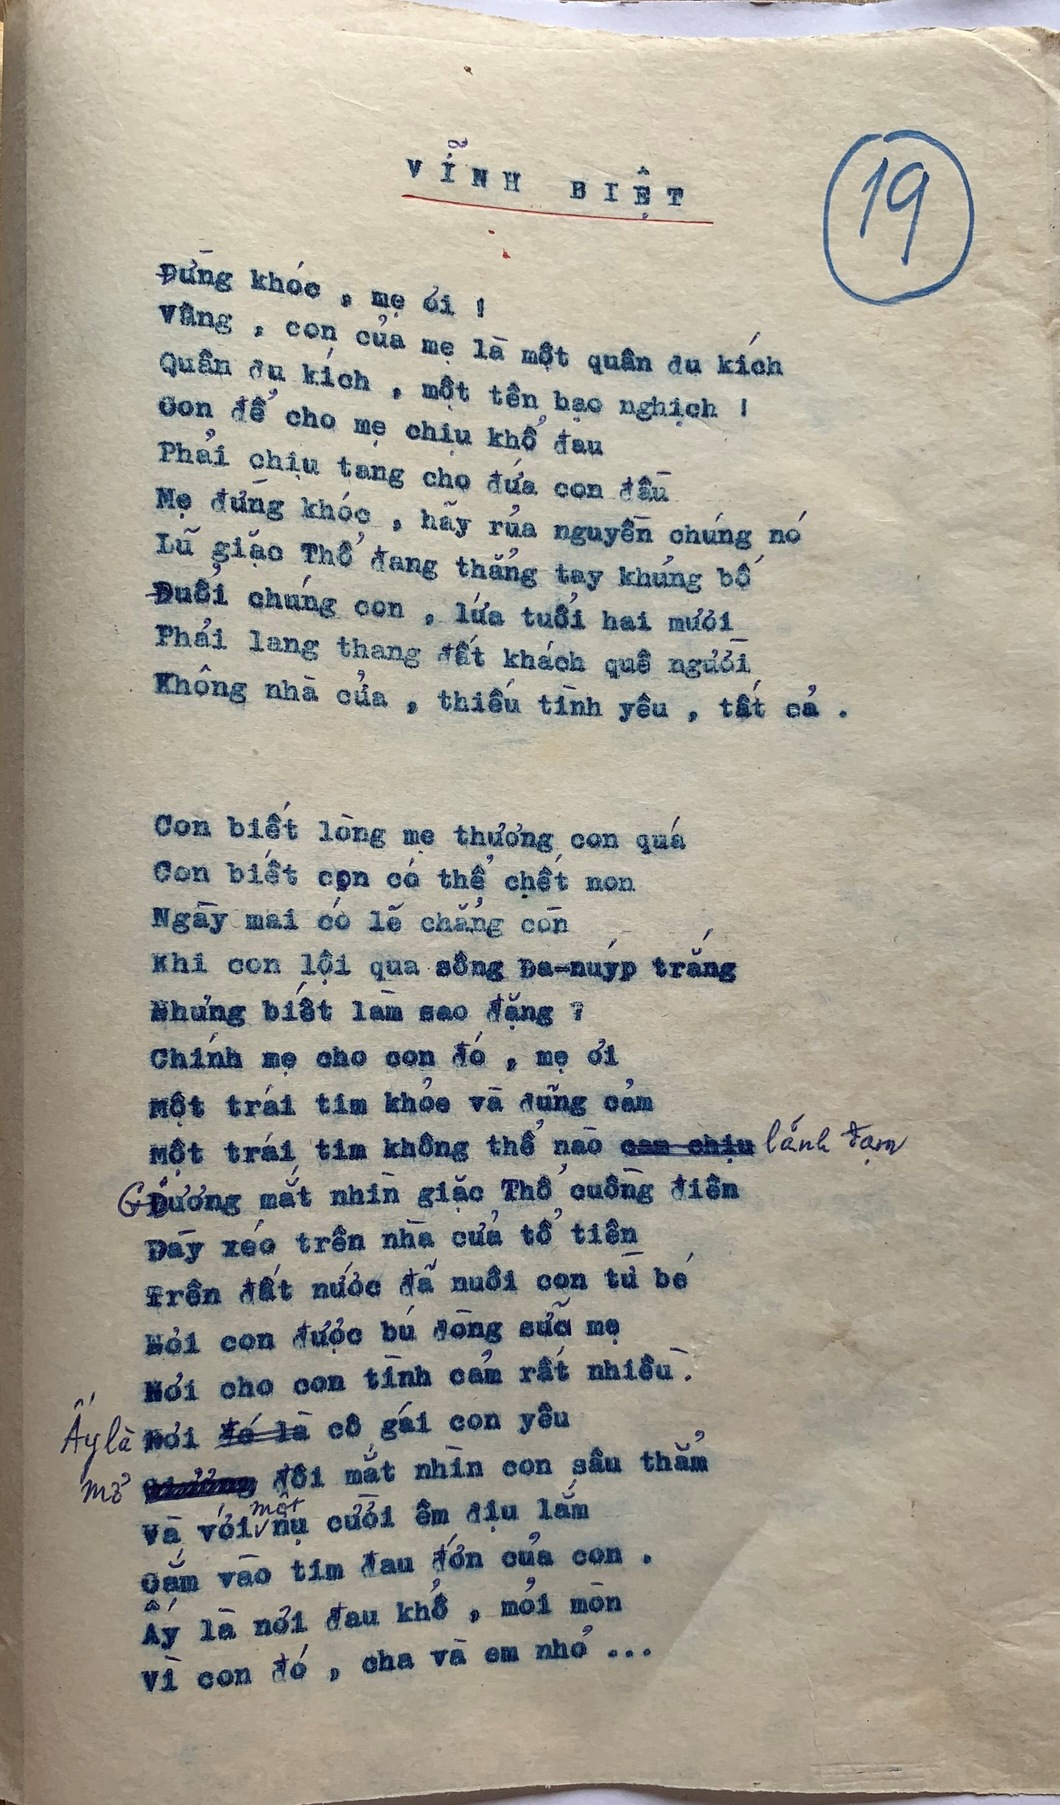 VĨNH BIỆT
19
Đừng khóc , mẹ ơi !
Vâng , con của mẹ là một quân du kích
Quân du kích , một tên bạo nghịch !
Con để cho mẹ chịu khổ đau
Phải chịu tang cho đứa con đầu
Mẹ đừng khóc , hãy rủa nguyền chúng nó
Lũ giặc Thổ đang thẳng tay khủng bố
Đuổi chúng con , lứa tuổi hai mươi
Phải lang thang đất khách quê người
Không nhà cửa , thiếu tình yêu , tất cả .
Con biết lòng mẹ thương con quá
Con biết con có thể chết non
Ngày mai có lẽ chẳng còn
Khi con lội qua sông Đa-nuýp trắng
Nhưng biết làm sao đặng ?
Chính mẹ cho con đó , mẹ ơi
Một trái tim khỏe và dũng cảm
Một trái tim không thể nào cam chịu lánh đạm
Gương mắt nhìn giặc Thổ cuồng điên
Dày xéo trên nhà cửa tổ tiên
Trên đất nước đã nuôi con từ bé
Nơi con được bú dòng sữa mẹ
Nơi cho con tình cảm rất nhiều .
Ấy là Nơi đó là cô gái con yêu
mở đôi mắt nhìn con sâu thẳm
Và với một nụ cười êm dịu lắm
Gắm vào tim đau đớn của con .
Ấy là nơi đau khổ , mỏi mòn
Vì con đó , cha và em nhỏ ...